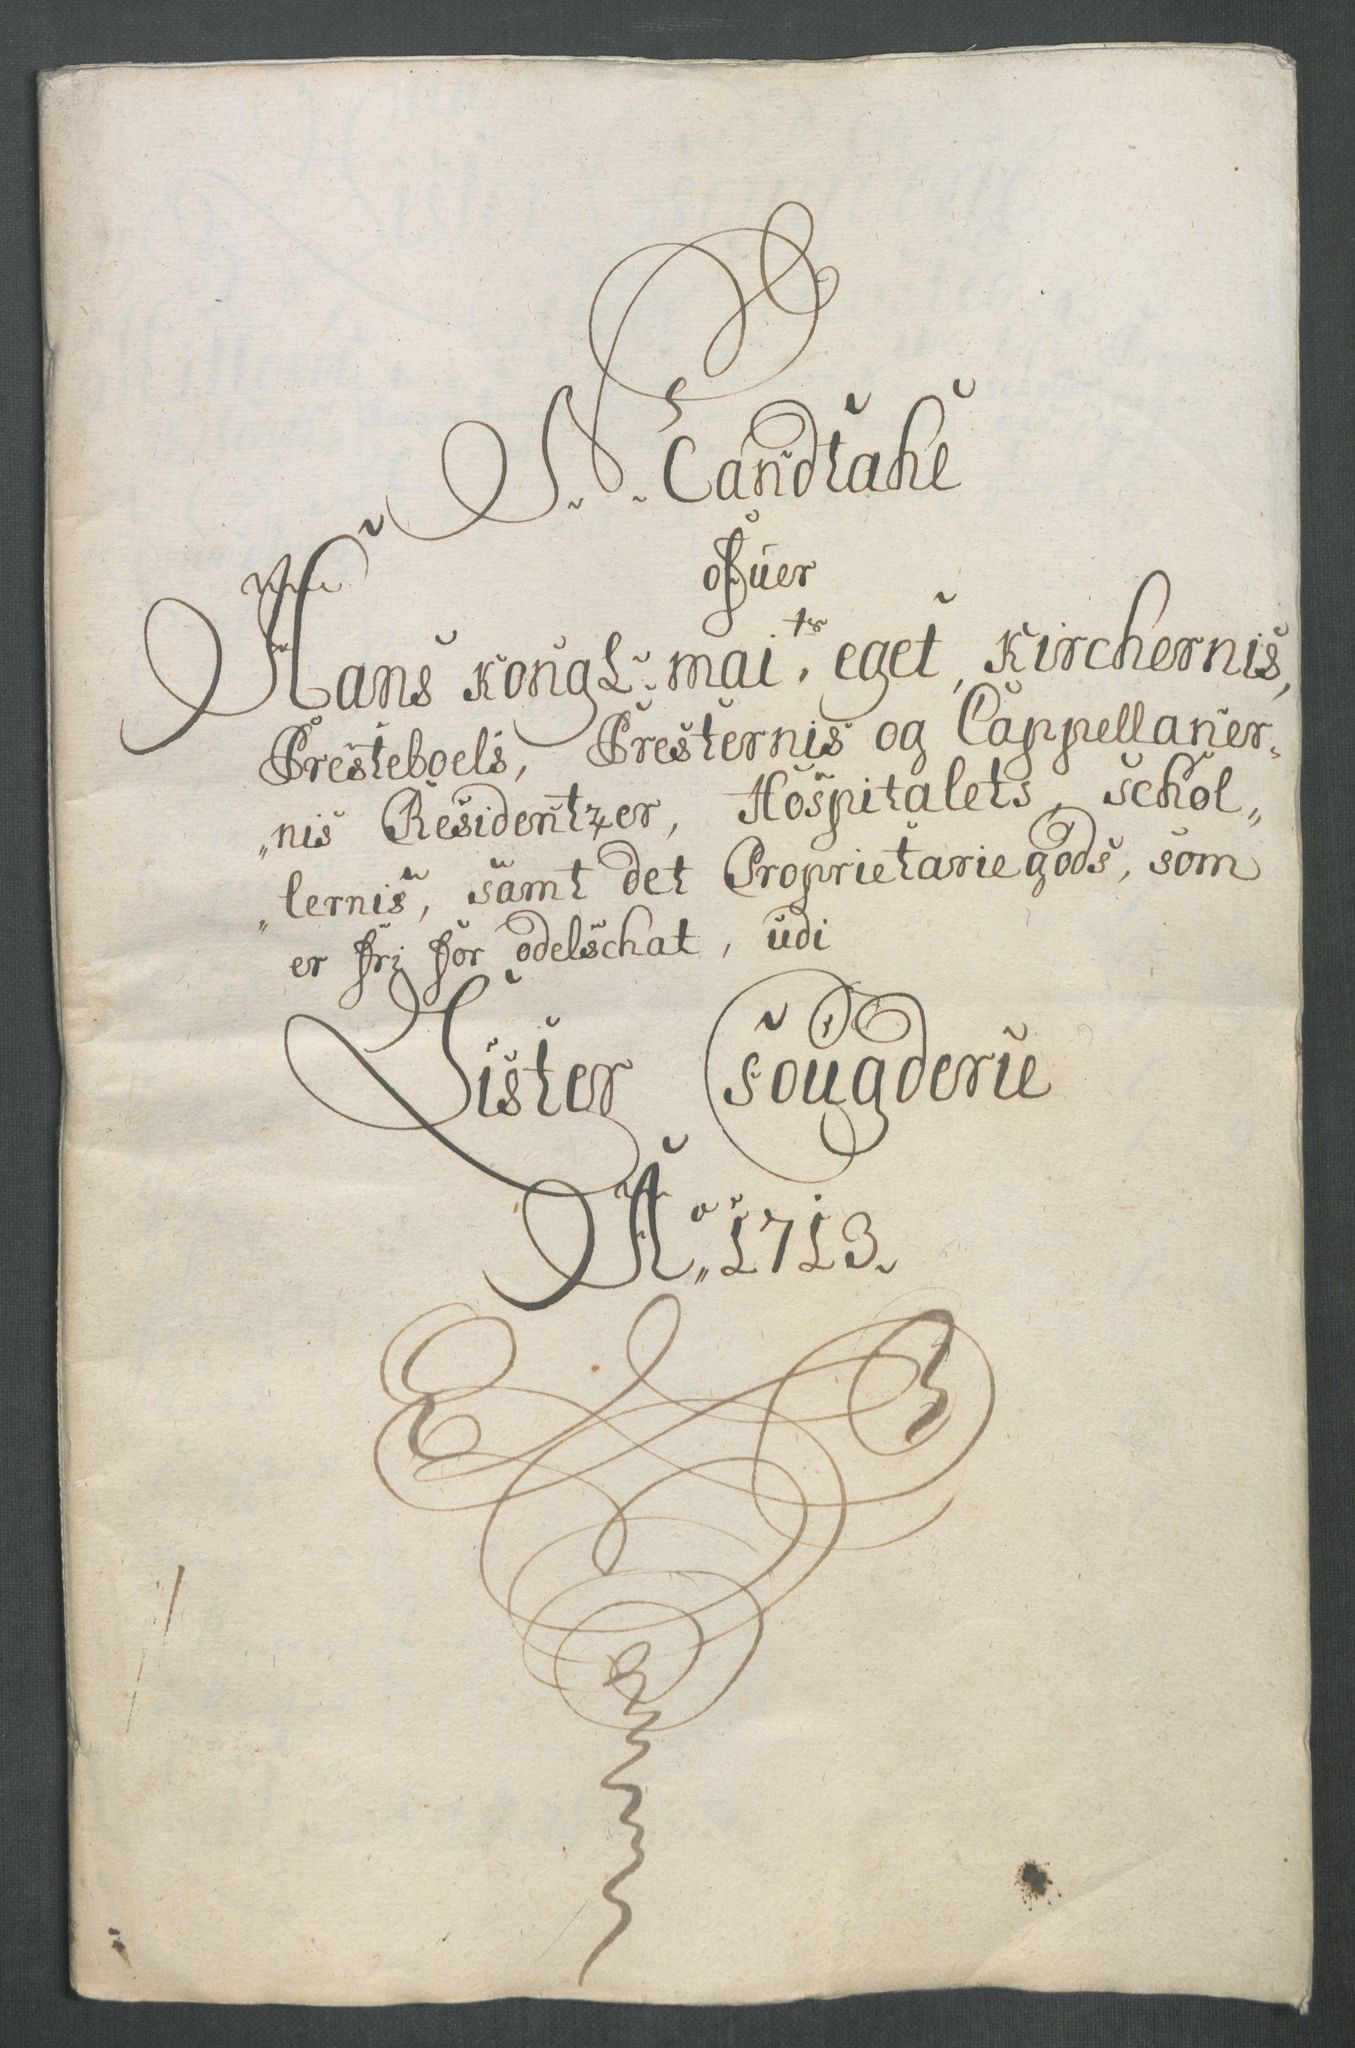 N. Mandtahl
ofuer
Hans Kongl. mai.ts eget, Kirchernis,
Presteboels, Presternis og Cappellaner„
„nis Residentzer, Hospitalets, schol„
„lernis, samt det Proprietarie gods, som
er fri for odelschat, udi
Lister fougderie
Ao 1713.